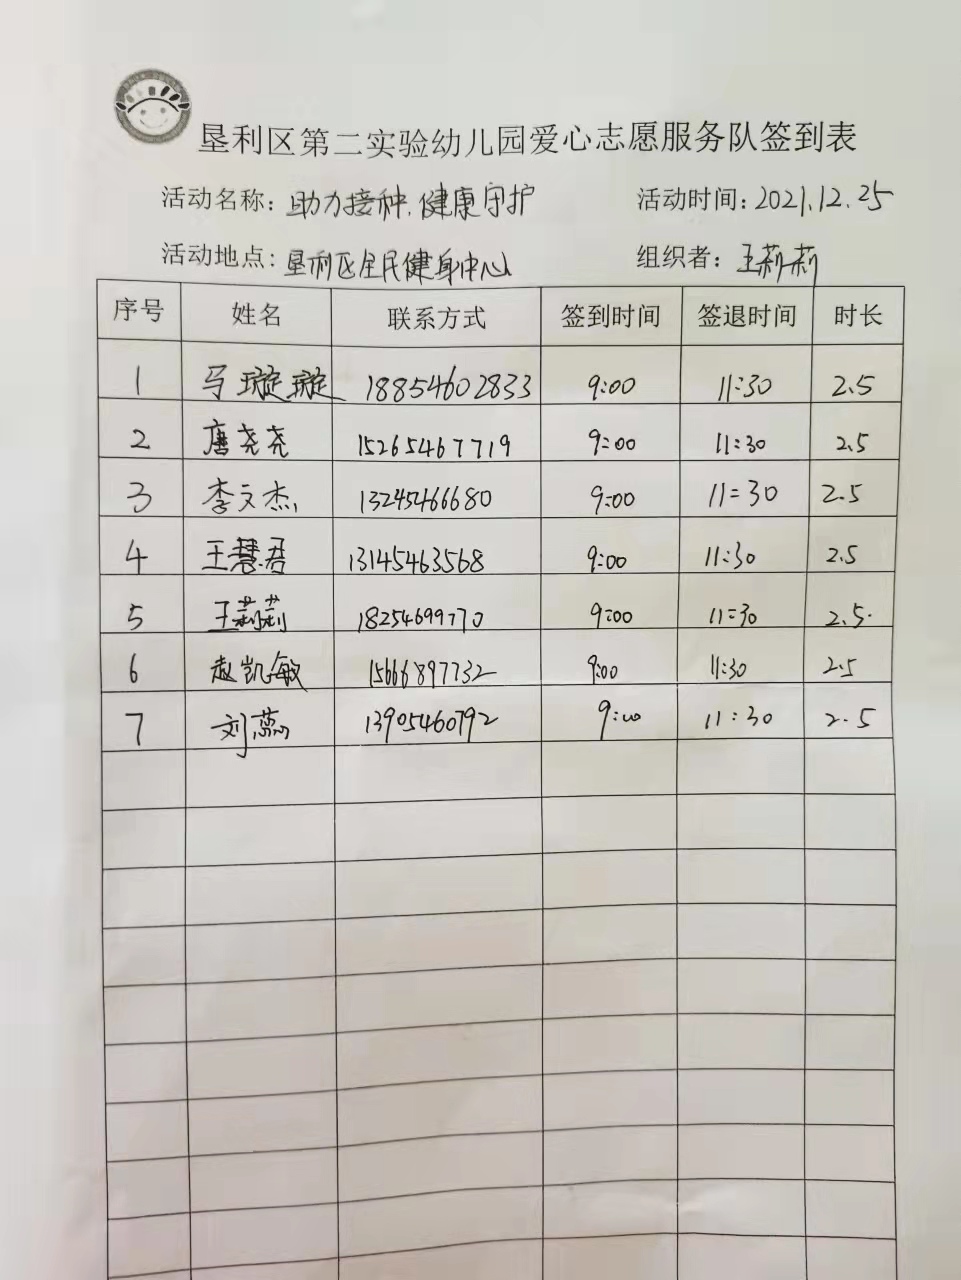 垦利区第二实验幼儿园爱心志愿服务队签到表
活动名称：助力接种，健康守护 活动时间：2021.12.25
活动地点：垦利区全民健身中心 组织者：王莉莉
序号 姓名 联系方式 签到时间 签退时间 时长
1 马璇璇 18854602833 9:00 11:30 2.5
2 唐尧尧 15265467719 9:00 11:30 2.5
3 李文杰 13245466680 9:00 11:30 2.5
4 王慧君 13145463568 9:00 11:30 2.5
5 王莉莉 18254699770 9:00 11:30 2.5
6 赵凯敏 15666897732 9:00 11:30 2.5
7 刘蕊 13905460792 9:00 11:30 2.5